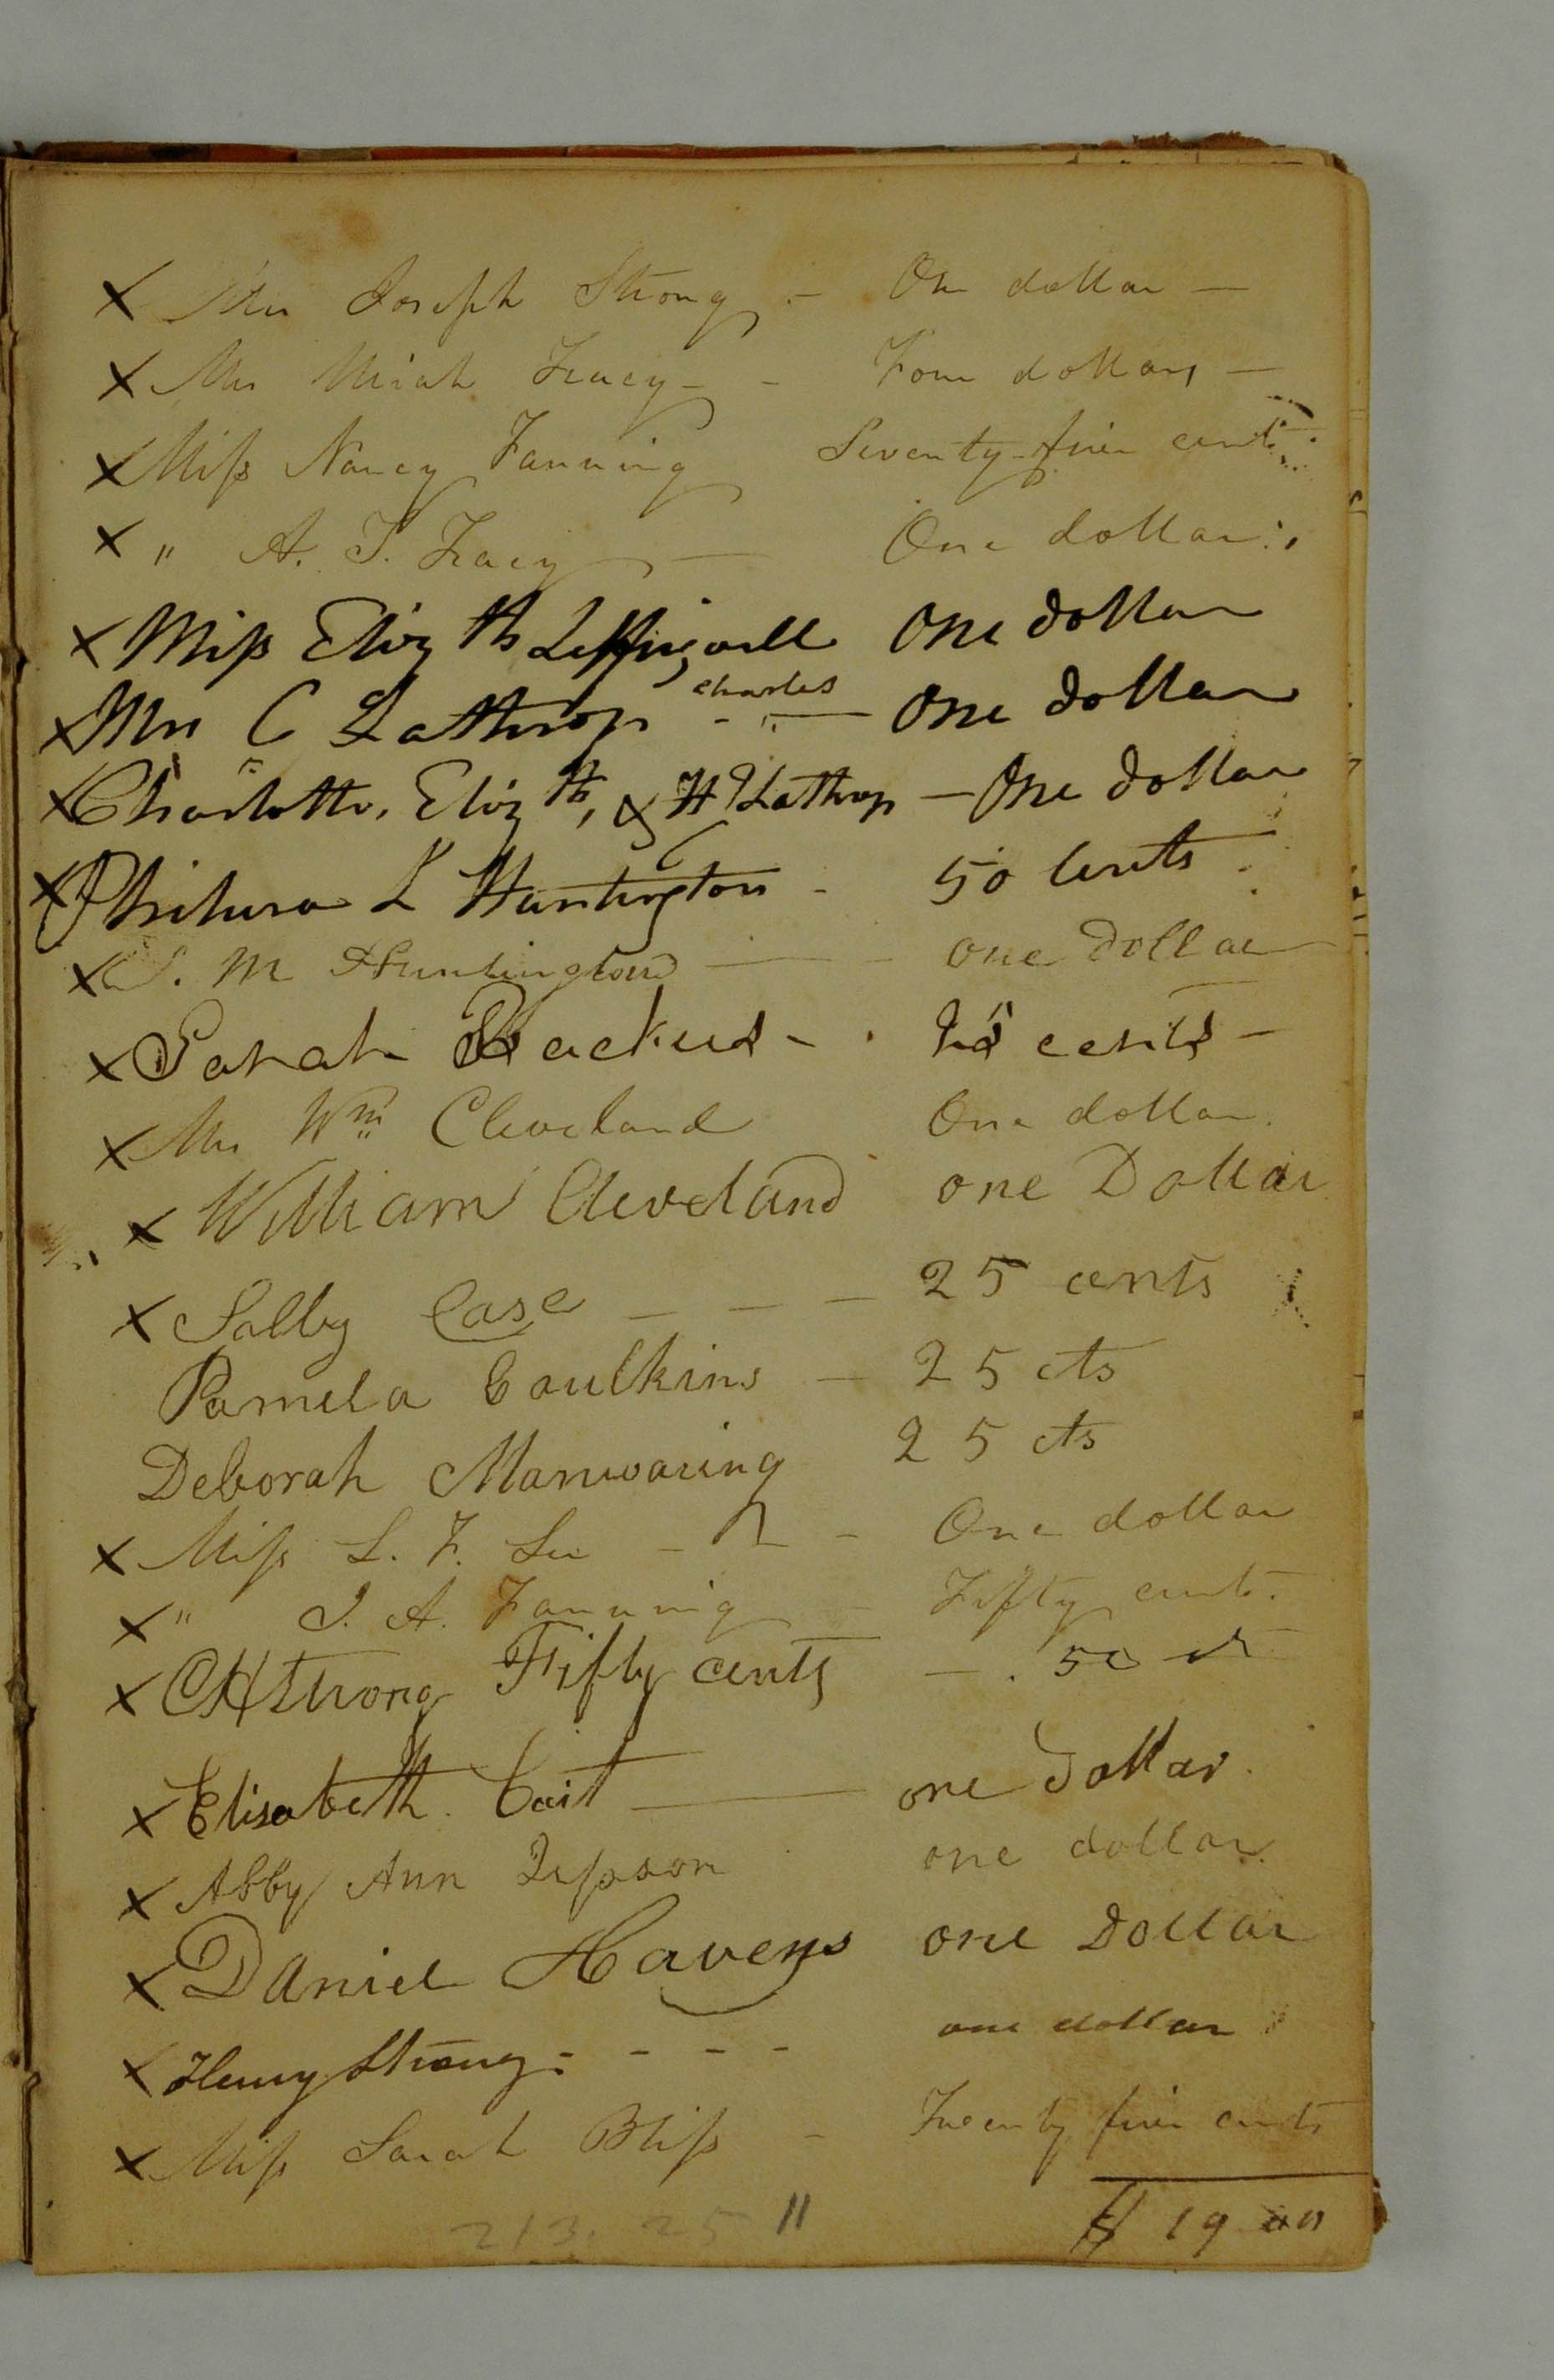 X Mrs Joseph Strong - One dollar -
X Mrs Uriah Tracy - - Four dollars -
X Miss Nancy Fanning Seventy-five cents
X " A. T. Tracy - One dollar
X Miss Eliz th Leffingwell One dollar
X Mrs C Lathrop charles - One dollar
X Charlotte, Eliz th, & H Lathrop - One dollar
X L Huntington - 50 Cents
X S. M Huntington - one Dollar
X Sarah Backus - cents -
X Mrs Wm Cleveland One dollar.
X William Cleveland one Dollar
X Salby Case - - - 25 cents
Pamela Caulkins - 25 cts
Deborah Manwaring 25 cts
X Miss L. F. Lee - - One dollar
X " J. A. Fanning - Fifty cents.
X CH Strong Fifty cents - . 50 ct
X Elisabeth Coit - one Dollar.
X Abby Ann Jepson one dollar.
X Daniel Havens one Dollar
X Henry Strong - - - - one dollar
X Miss Sarah Bliss - Twenty five cents
213. 25 11 $ 19 00